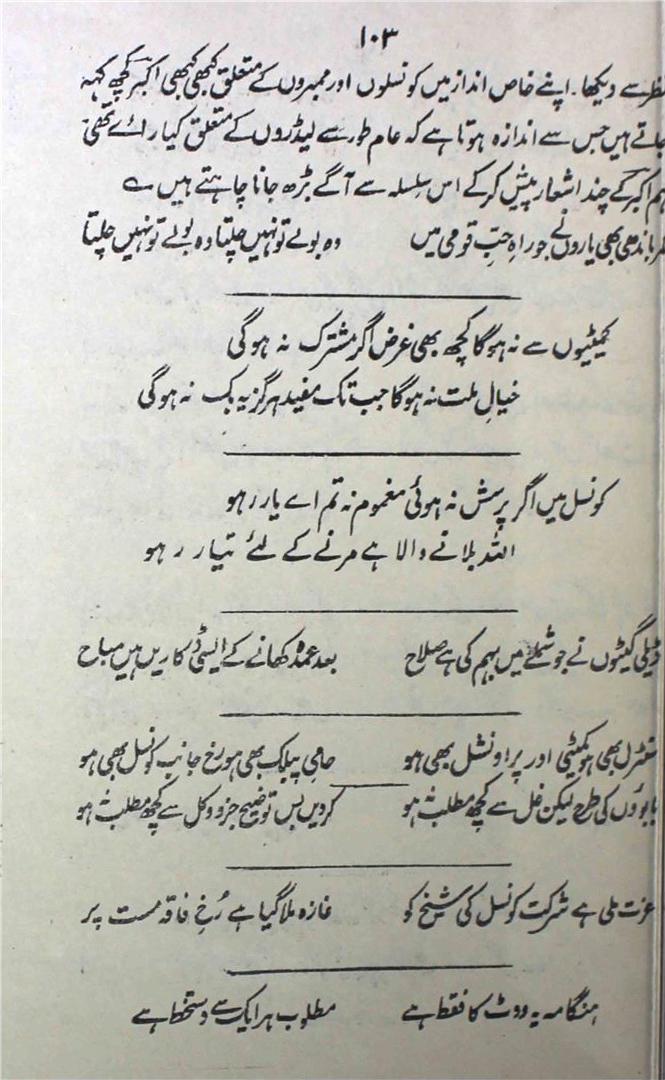 ۱۰۳
نظر سے دیکھا۔ اپنے خاص انداز میں کونسلوں اور ممبروں کے متعلق کبھی کبھی اکبر کچھ کہہ
جاتے ہیں جس سے اندازہ ہوتا ہے کہ عام طور سے لیڈروں کے متعلق کیا رائے تھی
ہم اکبر کے چند اشعار پیش کرکے اس سلسلہ سے آگے بڑھ جانا چاہتے ہیں ؎
کمر باندھی بھی یاروں نے جو راہِ حبِّ قومی میں وہ بولے تو نہیں چلتا وہ بولے تو نہیں چلتا
کمیٹیوں سے نہ ہوگا کچھ بھی غرض اگر مشترک نہ ہوگی
خیالِ ملت نہ ہوگا جب تک مفید ہرگز یہ بک نہ ہوگی
کونسل میں اگر پرسش نہ ہوئی مغموم نہ تم اے یار رہو
اللہ بلانے والا ہے مرنے کے لئے تیار رہو
ڈیلی گیٹوں نے جو شملے میں بہم کی ہے صلاح بعد عمدہ کھانے کے ایسی ڈکاریں ہیں مباح
سنٹرل بھی ہو کمیٹی اور پراونشل بھی ہو حامیِ پبلک بھی ہو رخ جانبِ کونسل بھی ہو
بابوؤں کی طرح لیکن غل سے کچھ مطلب نہ ہو کردیں بس توضیح جزو و کل سے کچھ مطلب نہ ہو
عزت ملی ہے شرکت کونسل کی شیخ کو غازہ ملا گیا ہے رُخِ فاقہ مست پر
ہنگامہ یہ ووٹ کا فقط ہے مطلوب ہر ایک سے دستخط ہے